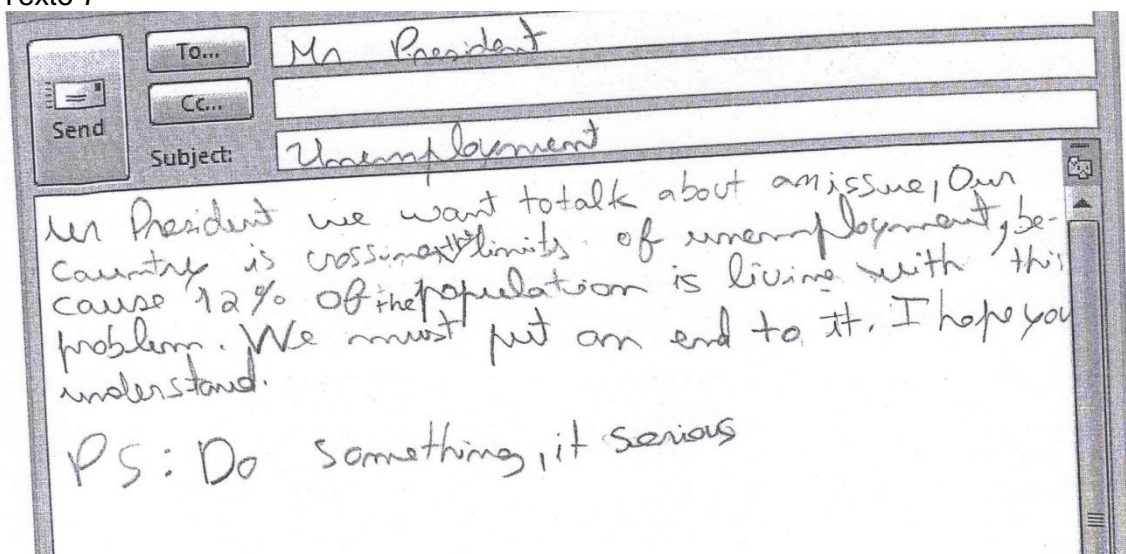 Texto 7
To... Mr President
Cc...
Send
Subject: Unemployment
Mr President we want to talk about an issue, Our
Country is crossing the limits of unemployment, be-
cause 12% Of the population is living with this
problem. We must put an end to it. I hope you
understand.
PS: Do something, it serious